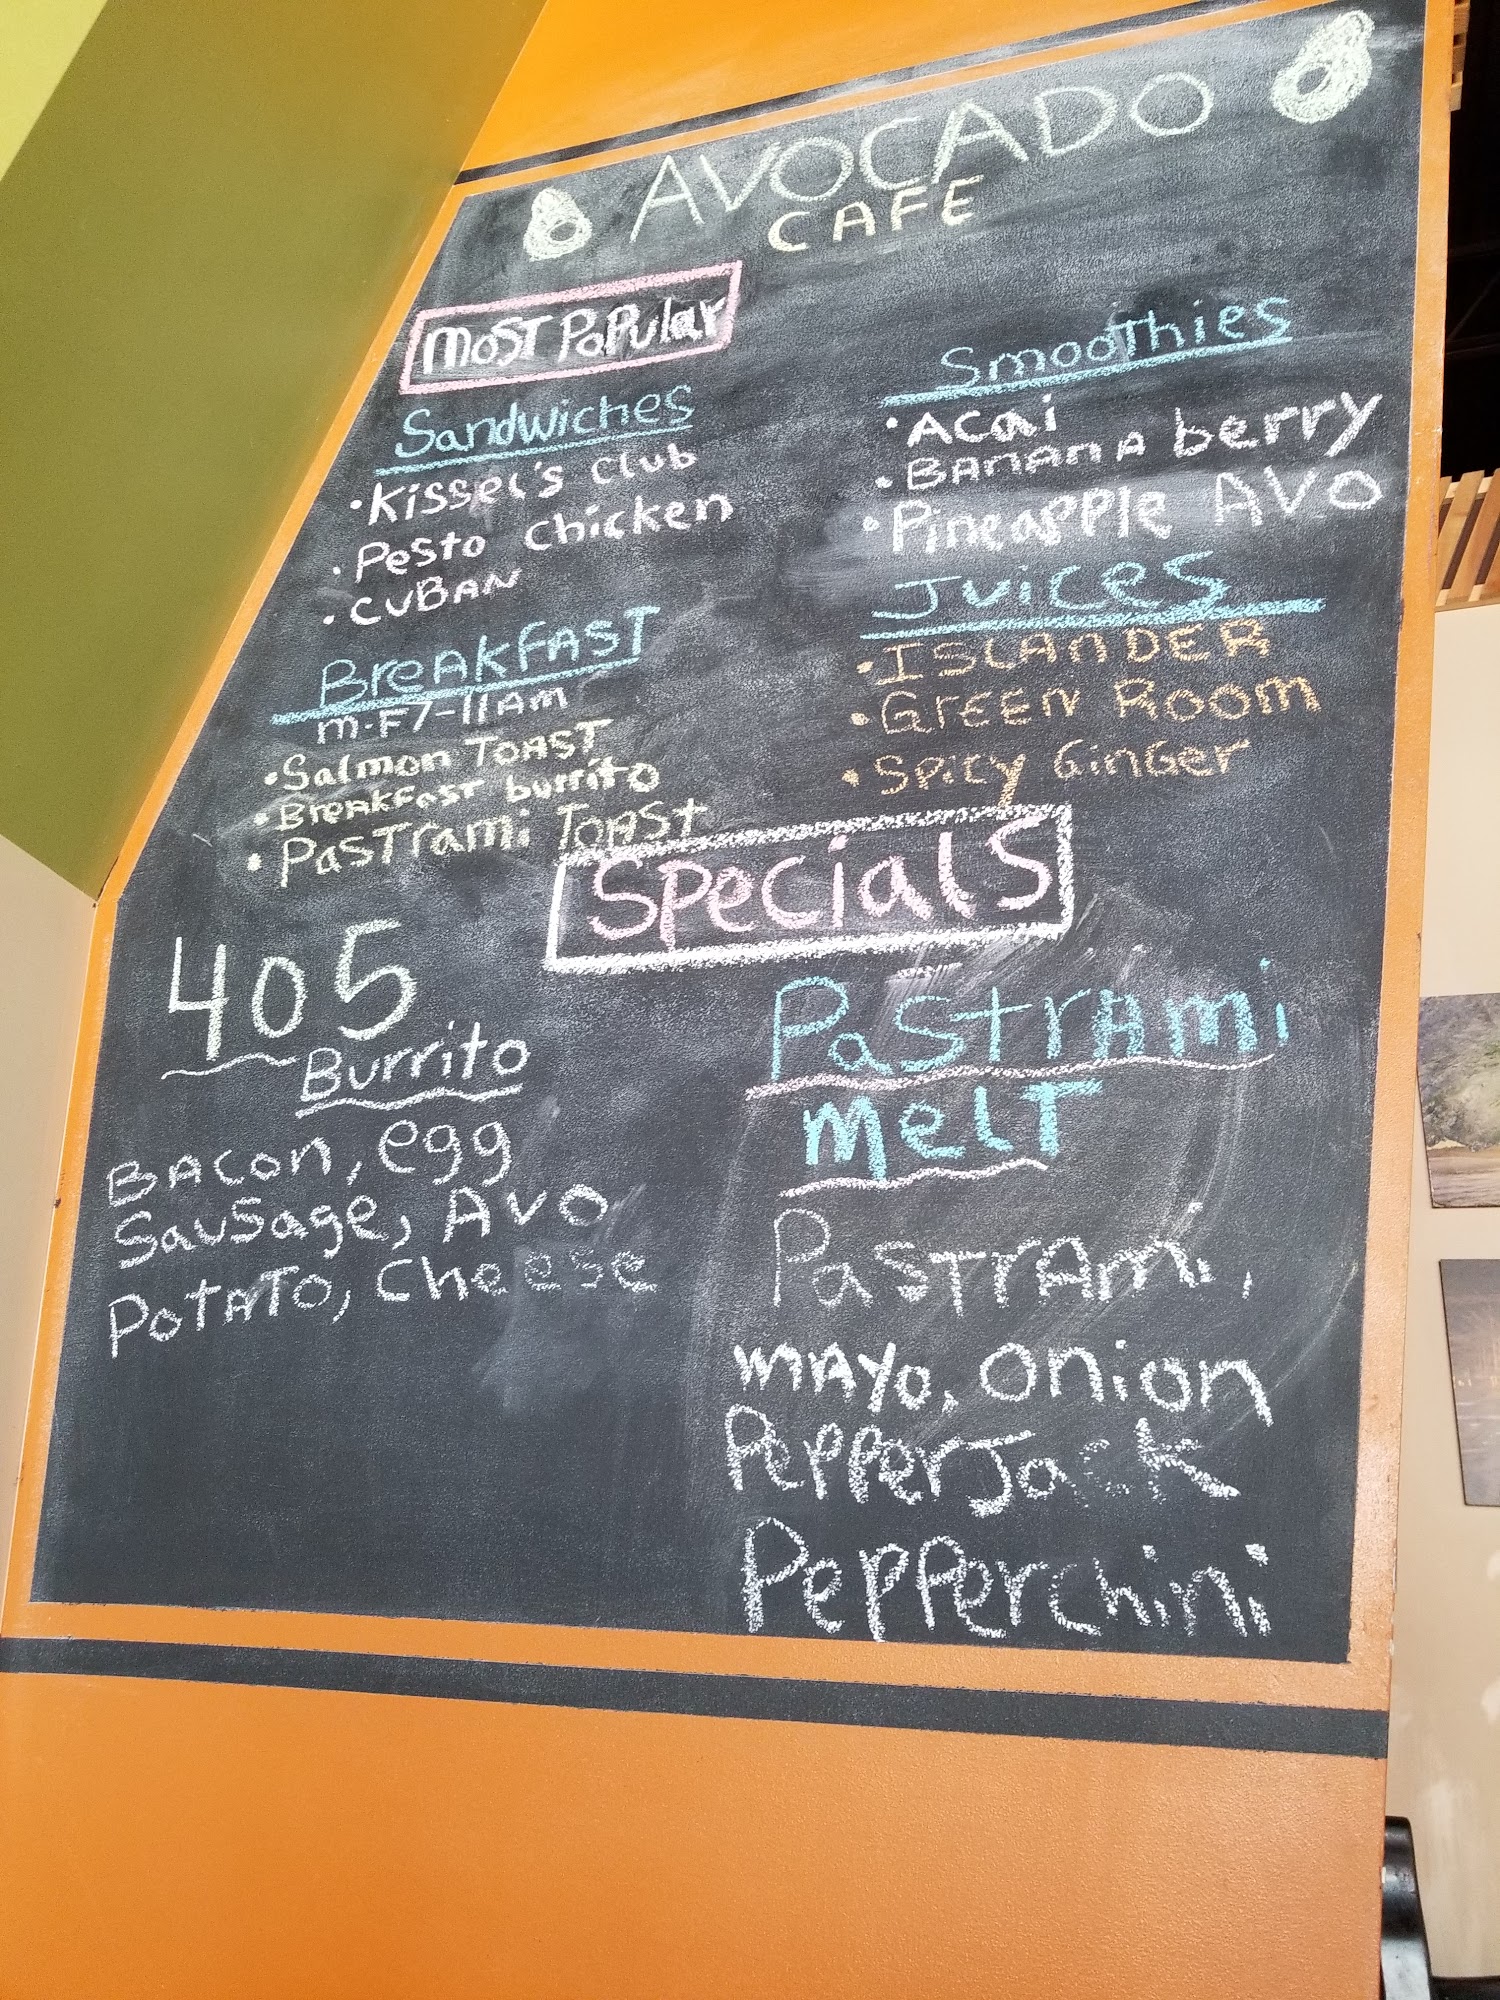 AVOCADO
CAFE
MOST POPular
Sandwiches
•Kissel's Club
•Pesto chicken
•CUBAN
BreAKFAST
M-F7-11Am
•Salmon TOAST
•BreAKFAST burrito
•PaSTrami TOASt
Smoothies
•Acai
•BANANA berry
•Pineapple AVO
JuiceS
•ISLANDER
•GrEEN ROOM
•Spicy GinGer
SpecialS
405
Burrito
BAcon, egg
SauSage, Avo
POTATO, Cheese
PaStrAmi
MeLT
PaSTrAmi,
MAYO, Onion
PepperJack
Pepperchini